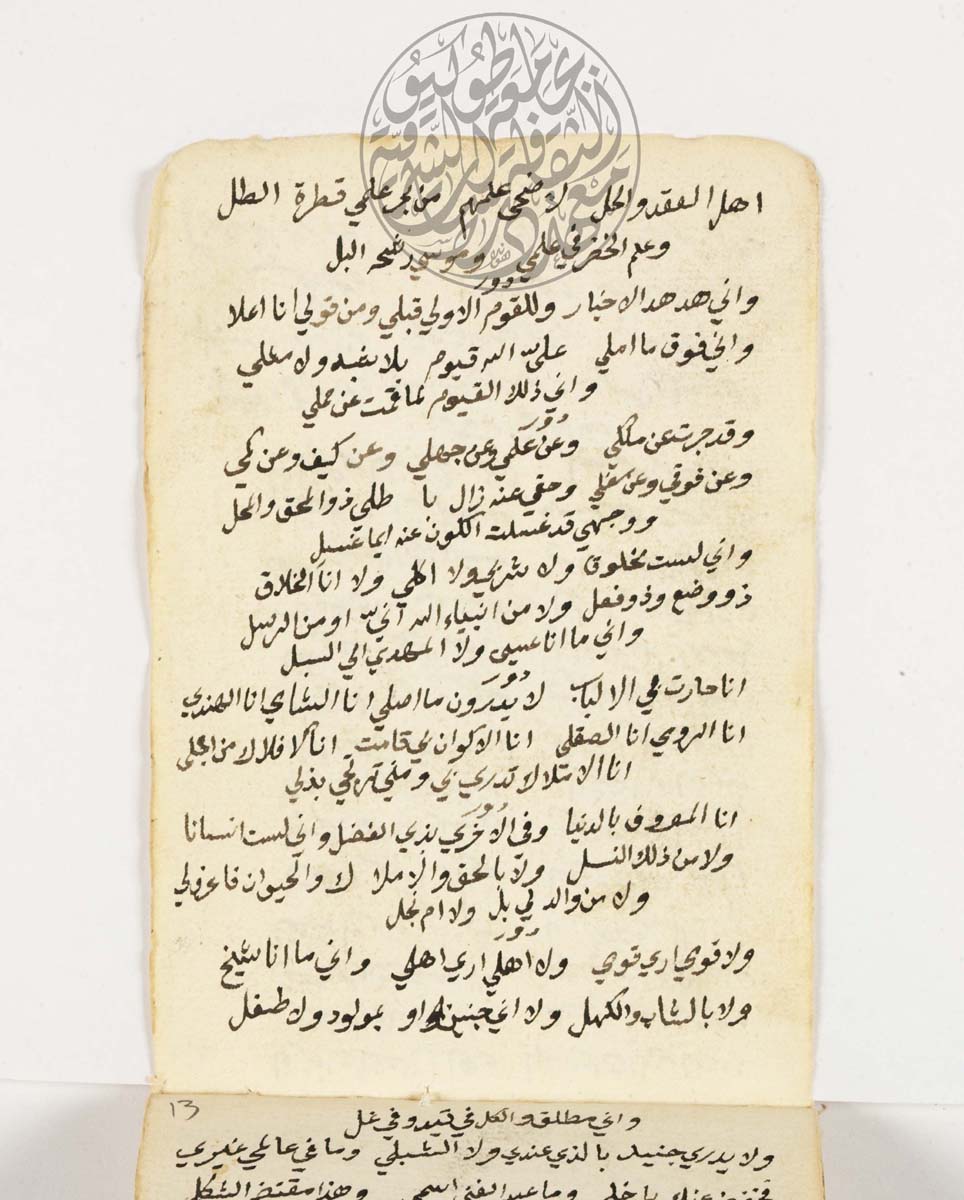 اهل العقد والحل لاضحى علمهم من بحر علمي قطرة الطل
وعلم الخضر في علمي وموسي رشحه البل
دور
واني هدهد الاخبار وللقوم الاولي قبلي ومن قولي انا اعلا
واني فوق ما املي عليّ الله قيوم بلا شبه ولا مثلي
واني ذلك القيوم لما قمت عن حملي
دور
وقد جرت عن ملكي وعن علمي وعن جهلي وعن كيف وعن كمي
وعن فوقي وعن سفلي وحقي عنه زال يا ظلي ذو المحق والمحل
ووجهي قد غسلت الكون عنه ايما غسل
واني لست مخلوق ولا شربي ولا اكلي ولا انا الخلاق
ذو وضع وذو فعل ولا من انبياء الله انيّ او من الرسل
واني ما انا عيسى ولا المهدي الي السبل
دور
انا حارت بي الالباب لا يدرون ما اصلي انا الشامي انا الهندي
انا الرومي انا الصقلي انا الاكوان بي قامت انا الافلاك من اجلي
انا الاملاك لا تدري بي ومني ترتجي بذلي
دور
انا المعروف بالدنيا وفي الاخري بذي الفضل واني لست انسانا
ولا من ذلك النسل ولا بالحق والاملا ك والحيوان فاعزولي
ولا من والد لي بل ولا ام نجل
دور
ولا قومي اري قومي ولا اهلي اري اهلي واني ما انا شيخ
ولا بالشاب والكهل ولا اني جنين او بمولود ولا طفل
13
واني مطلق والكل في قيد وفي غل
ولا يدري جنيد بالذي عندي ولا الشبلي وما في عالمي غيري
وما عبد الغني اسمي وهذا مقتضى الشكل